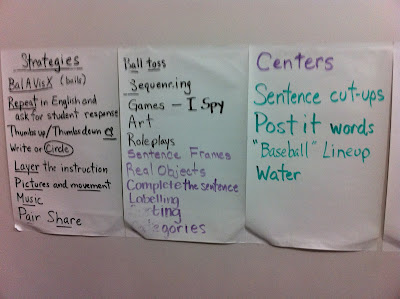 Strategies
BalAVisX (balls)
Repeat in English and
ask for student response
Thumbs up/Thumbs down
Write or Circle
Layer the instruction
Pictures and movement
Music
Pair Share
Ball toss
Sequencing
Games - I Spy
Art
Roleplays
Sentence Frames
Real Objects
Complete the sentence
Labelling
Sorting
Categories
Centers
Sentence cut-ups
Post it words
"Baseball" Lineup
Water